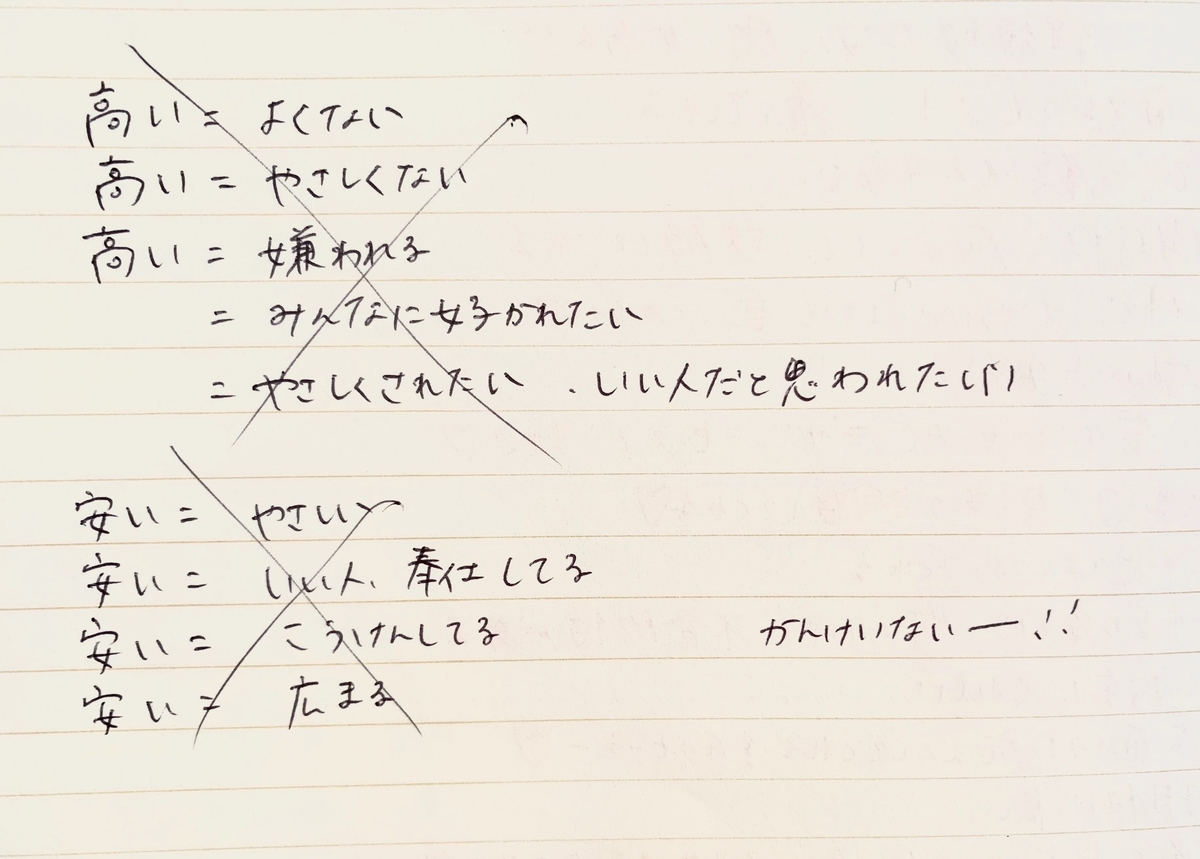 高い = よくない
高い = やさしくない
高い = 嫌われる
= みんなに好かれたい
= やさしくされたい . いい人だと思われたい
安い = やさい
安い = いい人、奉仕してる
安い = こうけんしてる
かんけいないー!!
安い = 広まる